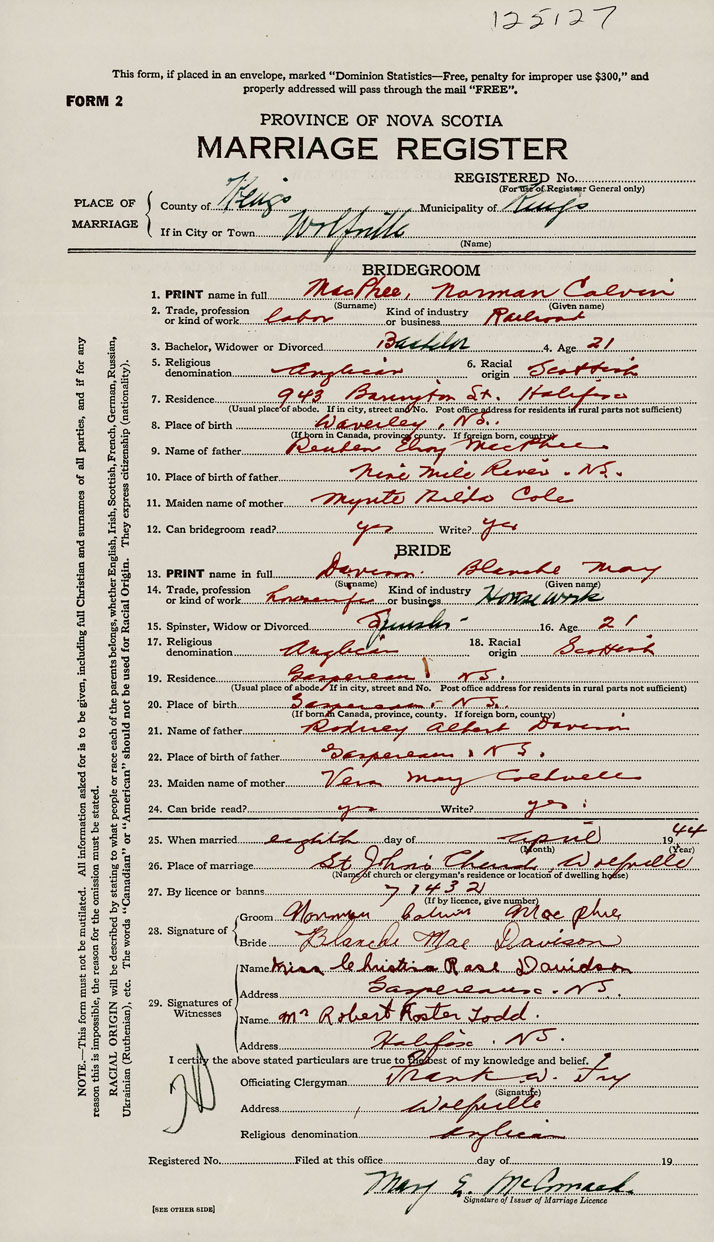 125127
This form, if placed in an envelope, marked "Dominion Statistics—Free, penalty for improper use $300," and
properly addressed will pass through the mail "FREE".
FORM 2
PROVINCE OF NOVA SCOTIA
MARRIAGE REGISTER
REGISTERED No.
(For use of Registrar General only)
PLACE OF MARRIAGE
County of Kings Municipality of Kings
If in City or Town Wolfville
(Name)
BRIDEGROOM
1. PRINT name in full MacPhee, Norman Calvin
(Surname) (Given name)
2. Trade, profession or kind of work labor Kind of industry or business Railroad
3. Bachelor, Widower or Divorced Bachelor 4. Age 21
5. Religious denomination Anglican 6. Racial origin Scottish
7. Residence 943 Barington St. Halifax
(Usual place of abode. If in city, street and No. Post office address for residents in rural parts not sufficient)
8. Place of birth Waverley, N.S.
(If born in Canada, province, county. If foreign born, country)
9. Name of father Reuben Elroy MacPhee
10. Place of birth of father Nine Mile River. N.S.
11. Maiden name of mother Cole
12. Can bridegroom read? yes Write? yes
BRIDE
13. PRINT name in full Davison. Blanche May
(Surname) (Given name)
14. Trade, profession or kind of work Kind of industry or business House work
15. Spinster, Widow or Divorced Spinster 16. Age 21
17. Religious denomination Anglican 18. Racial origin Scottish
19. Residence Gaspereau N.S.
(Usual place of abode. If in city, street and No. Post office address for residents in rural parts not sufficient)
20. Place of birth Gaspereau N.S.
(If born in Canada, province, county. If foreign born, country)
21. Name of father Rodney Albert Davison
22. Place of birth of father Gaspereau, N.S.
23. Maiden name of mother Vera May Coldwell
24. Can bride read? yes Write? yes.
25. When married eighth day of April 1944
(Month) (Year)
26. Place of marriage St John's Church, Wolfville
(Name of church or clergyman's residence or location of dwelling house)
27. By licence or banns 71432
(If by licence, give number)
28. Signature of
Groom Norman Calvin MacPhee
Bride Blanche Mae Davison
29. Signatures of Witnesses
Name Miss Christina Rose Davidson
Address Gaspereaux. N.S.
Name Mr Robert Foster Todd.
Address Halifax. N.S.
I certify the above stated particulars are true to the best of my knowledge and belief.
Officiating Clergyman Frank W. Fry
(Signature)
Address Wolfville
Religious denomination Anglican
Registered No. Filed at this office day of 19
Mary E. McCormack
Signature of Issuer of Marriage Licence
[SEE OTHER SIDE]
NOTE.—This form must not be mutilated. All information asked for is to be given, including full Christian and surnames of all parties, and if for any
reason this is impossible, the reason for the omission must be stated.
RACIAL ORIGIN will be described by stating to what people or race each of the parents belongs, whether English, Irish, Scottish, French, German, Russian,
Ukrainian (Ruthenian), etc. The words "Canadian" or "American" should not be used for Racial Origin. They express citizenship (nationality).